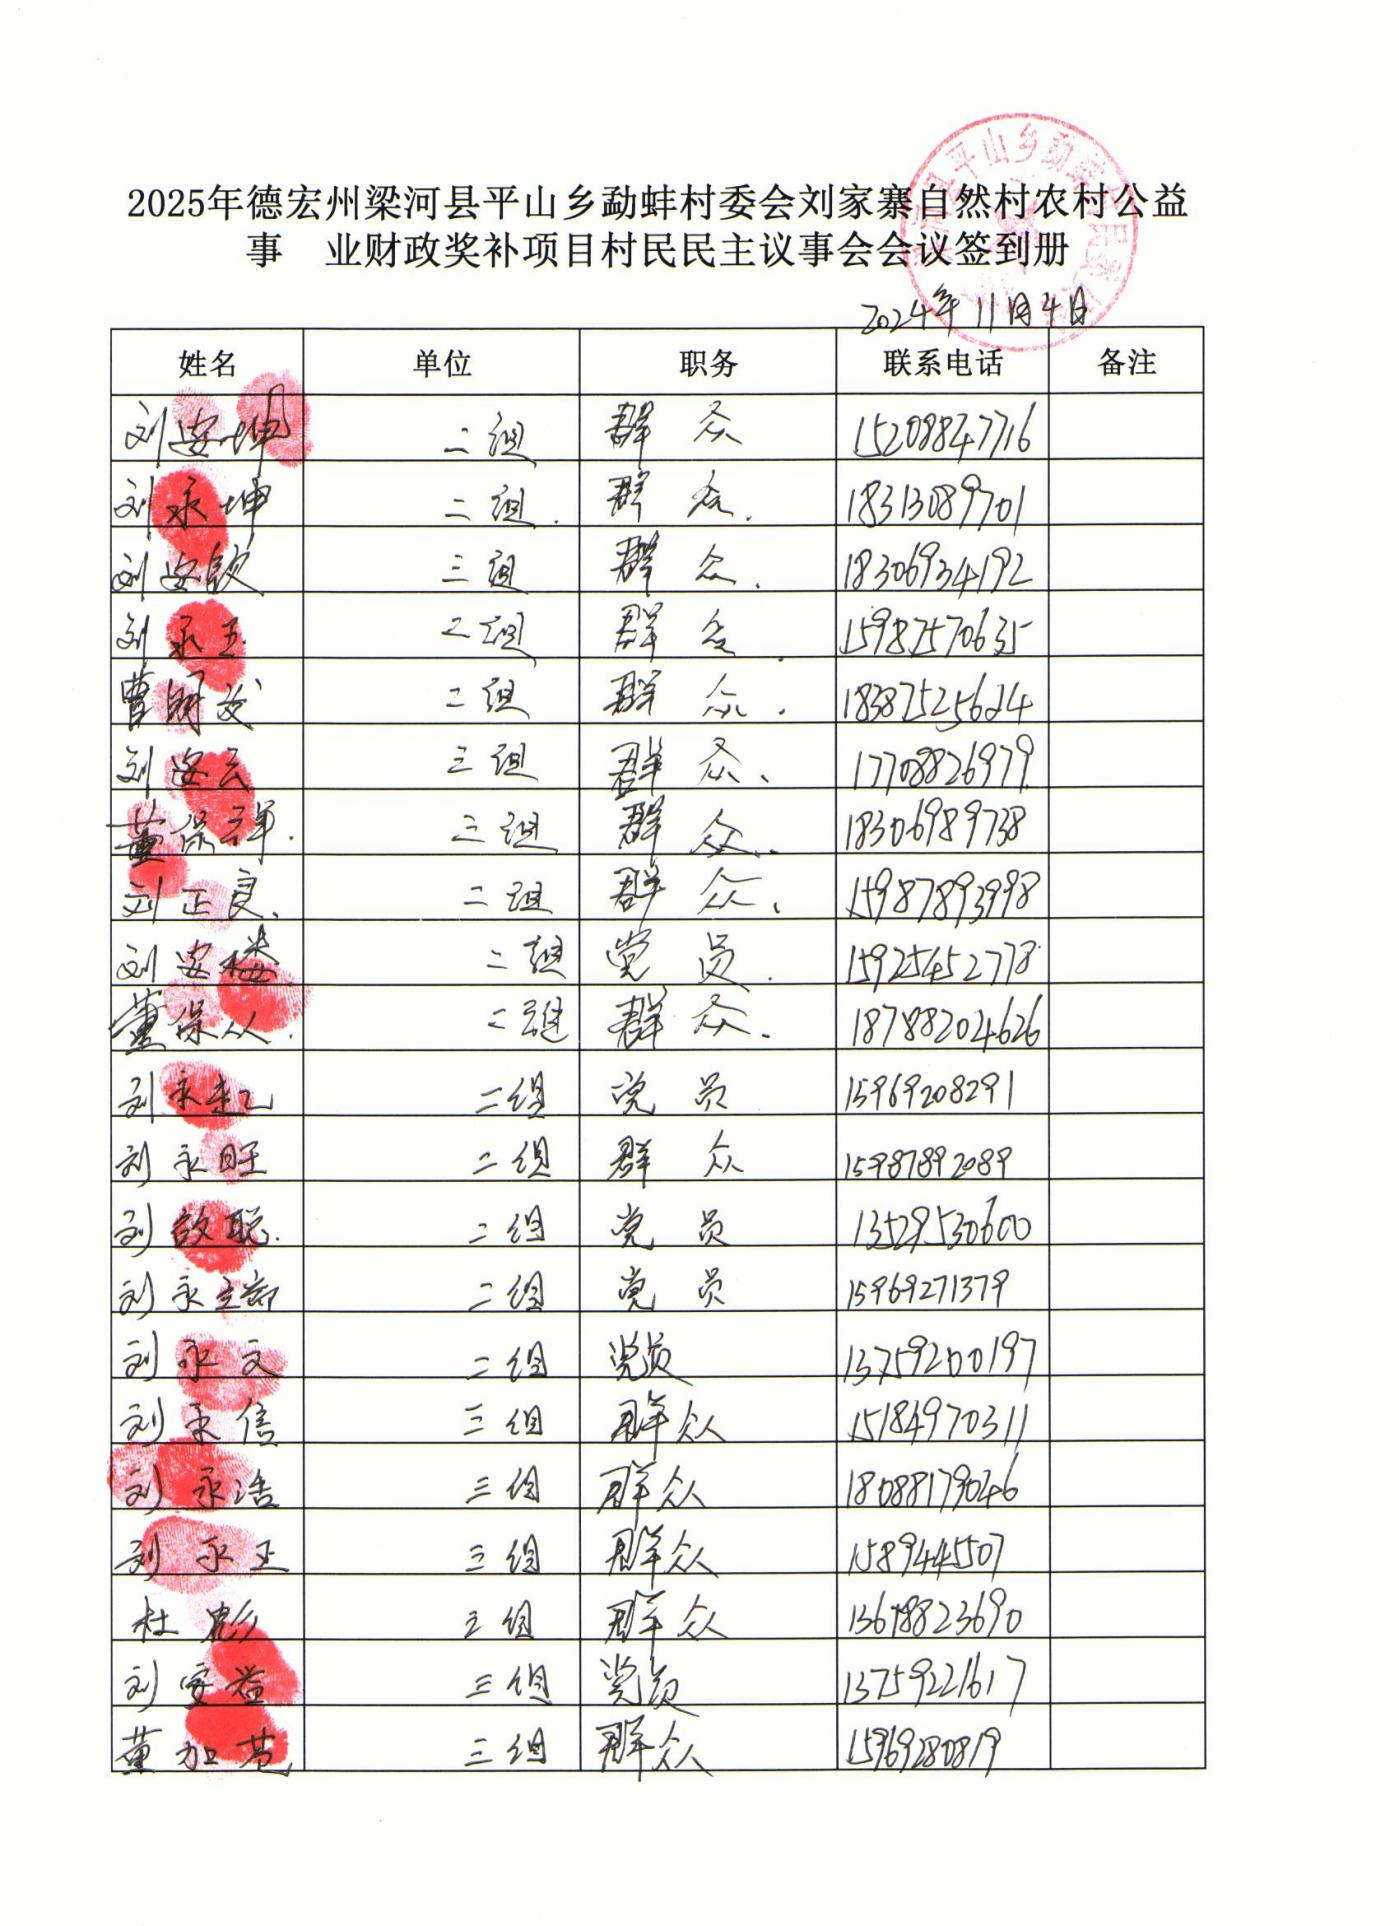 2025年德宏州梁河县平山乡勐蚌村委会刘家寨自然村农村公益
事 业财政奖补项目村民民主议事会会议签到册
2024年11月4日
姓名 单位 职务 联系电话 备注
刘安坤 二组 群众 15208847716
刘永坤 二组. 群众. 18313089701
刘安钦 三组 群众. 18306934192
刘永玉 二组 群众. 15987570635
曹明 二组 群众. 18387525624
刘安云 三组 群众、 17708826979
董保军. 三组 群众.. 18306989738
刘正良、 二组 群众、 15987893998
刘安楼 二组 党员. 15925452778
董保从. 二组 群众. 18788204626
刘永 二组 党员 15969208291
刘永旺 二组 群众 15987892089
刘 聪. 二组 党员 13529530600
刘永 二组 党员 15969271379
刘永文 二组 党员 13759200197
刘永信 三组 群众 15184970311
刘永浩 三组 群众 18088179046
刘永正 三组 群众 1589445507
杜彪 三组 群众 13618823690
刘安益 三组 党员 13759221617
董加苑 三组 群众 15969280819